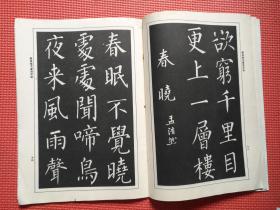 欲窮千里目
更上一層樓
春曉 孟浩然
春眠不覺曉
處處聞啼鳥
夜来風雨聲